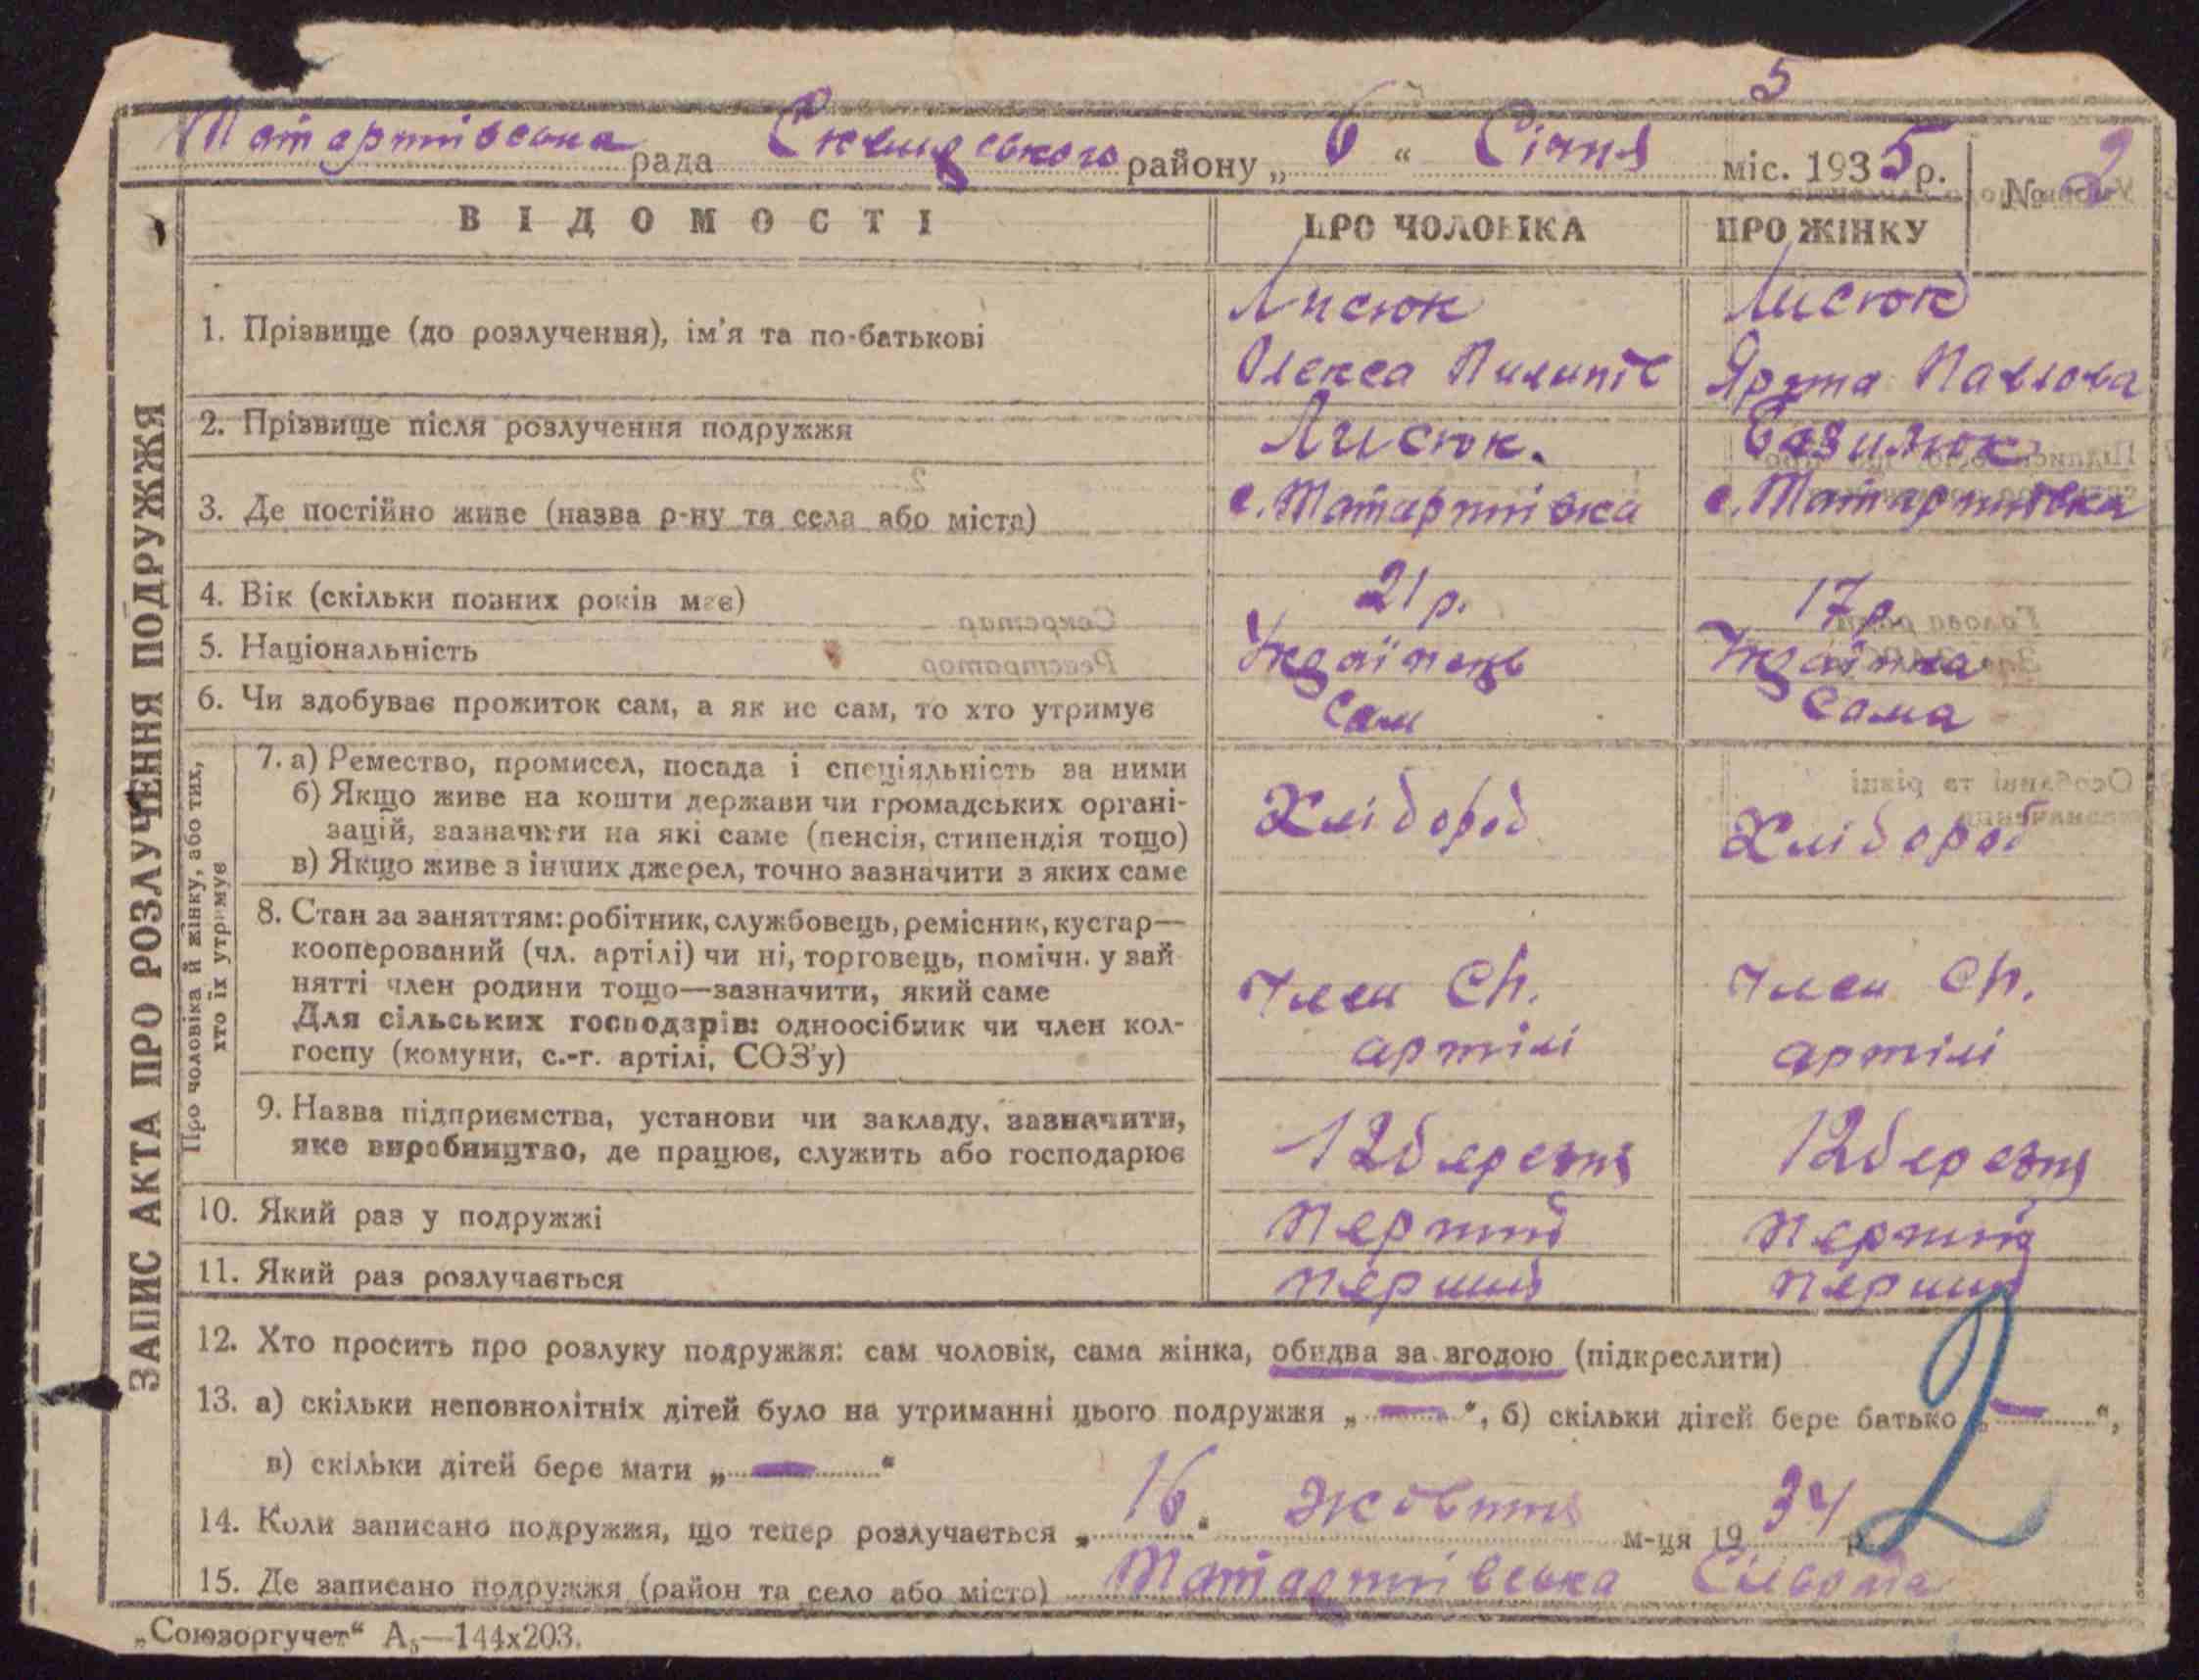 5
Татаршівська рада Сквирського району „ 6 “ Січня міс. 1935 р. № 2
ВІДОМОСТІ ПРО ЧОЛОВІКА ПРО ЖІНКУ
1. Прізвище (до розлучення), ім'я та по-батькові
Лисюк Лисюк
Олекса Пилипів Ярина Павлова
2. Прізвище після розлучення подружжя Лисюк. Базилюк
3. Де постійно живе (назва р-ну та села або міста) с. Татаршівка с. Татаршівка
4. Вік (скільки повних років має) 21 р. 17 р.
5. Національність Українець Українка
6. Чи здобуває прожиток сам, а як не сам, то хто утримує сам сама
7. а) Ремество, промисел, посада і спеціяльність за ними
б) Якщо живе на кошти держави чи громадських органі-
зацій, зазначити на які саме (пенсія, стипендія тощо)
в) Якщо живе з інших джерел, точно зазначити з яких саме
Хлібороб Хлібороб
8. Стан за заняттям: робітник, службовець, ремісник, кустар—
кооперований (чл. артілі) чи ні, торговець, помічн. у зай
нятті член родини тощо—зазначити, який саме
Для сільських господарів: одноосібник чи член кол-
госпу (комуни, с.-г. артілі, СОЗ'у)
Член Сп. Член Сп.
артілі артілі
9. Назва підприємства, установи чи закладу, зазначити,
яке виробництво, де працює, служить або господарює
12 березня 12 березня
10. Який раз у подружжі перший перший
11. Який раз розлучається перший перший
Про чоловіка й жінку, або тих,
хто їх утримує
ЗАПИС АКТА ПРО РОЗЛУЧЕННЯ ПОДРУЖЖЯ
12. Хто просить про розлуку подружжя: сам чоловік, сама жінка, обидва за згодою (підкреслити)
13. а) скільки неповнолітніх дітей було на утриманні цього подружжя „ — “, б) скільки дітей бере батько „ — “,
в) скільки дітей бере мати „ — “
14. Коли записано подружжя, що тепер розлучається „ 16 “ жовтня м-ця 1934 р.
2
15. Де записано подружжя (район та село або місто) Татаршівська
„Союзоргучет“ А₅—144х203.